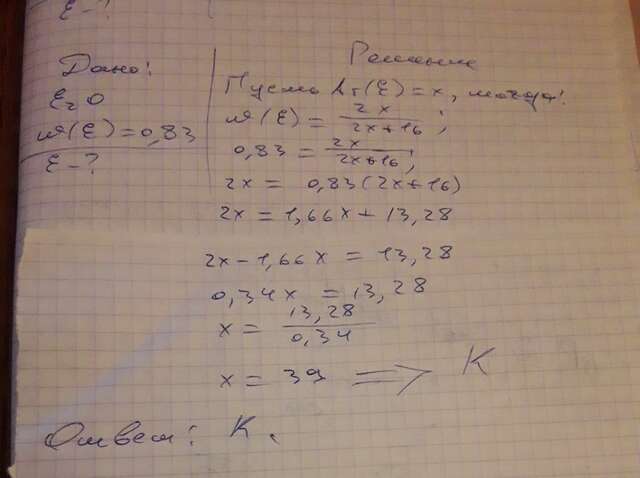 E - ?
Дано:
E₂O
ω(E) = 0,83
E - ?
Решение
Пусть Ar(E) = x, тогда:
ω(E) = 2x / 2x + 16 ;
0,83 = 2x / 2x + 16 ;
2x = 0,83(2x + 16)
2x = 1,66x + 13,28
2x - 1,66x = 13,28
0,34x = 13,28
x = 13,28 / 0,34
x = 39 ⟹ K
Ответ: K.